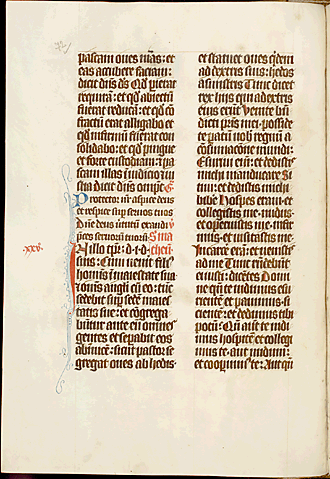 pascam oues meas: et
eas accubare faciam:
dicit dn̄s ds̄. Qd̄ perierat
requirā: et qd̄ abiectū
fuerat reducā: et qd̄ cō
fractū erat alligabo et
qd̄ infirmū fuerat con
solidabo: et qd̄ pingue
et forte custodiam: ⁊ pa
scam illas ī iudicio ⁊ iu
sticia dicit dn̄s omp̄s.
Protector nr̄ aspice deus
et respice sup seruos tuos
Dn̄e deus uirtutū exaudi
p̄ces seruorū tuorū. S. ma
xxv.
In illo tpr̄: d. i. d.
suis: Cum uenerit filꝰ
hominis ī maiestate sua
⁊ om̄s angeli cū eo: tūc
sedebit sup sedē maies
tatis sue: et cōgrega
būtur ante eū omnes
gentes et separabit eos
abīuicē: sicut pastor se
gregat oues ab hedis.
et statuet oues q̄dem
a dextris suis: hedos
a sinistris Tunc dicet
rex hijs qui a dextris
eius erūt. Uenite bn̄
dicti pr̄is mei: posside
te patū uob regnū a
cōstitucione mundi.
Esuriui enī: et dedistis
michi manducare Si
tiui: et dedistis michi
bibere Hospes eram: et
collegistis me: nudus:
et operuistis me: infir
mus: et uisitastis me:
In carcere erā: et uenistis
ad me Tunc rn̄debūt
ei iusti: dicētes Domi
ne qn̄ te uidimus esu
rientē: et pauimus: si
cientē: et dedimus tibi
potū: Qn̄ aūt te uidi
mus hospitē: et collegi
mus te: aut nudum:
et cooperuimꝰ te: Aut qn̄